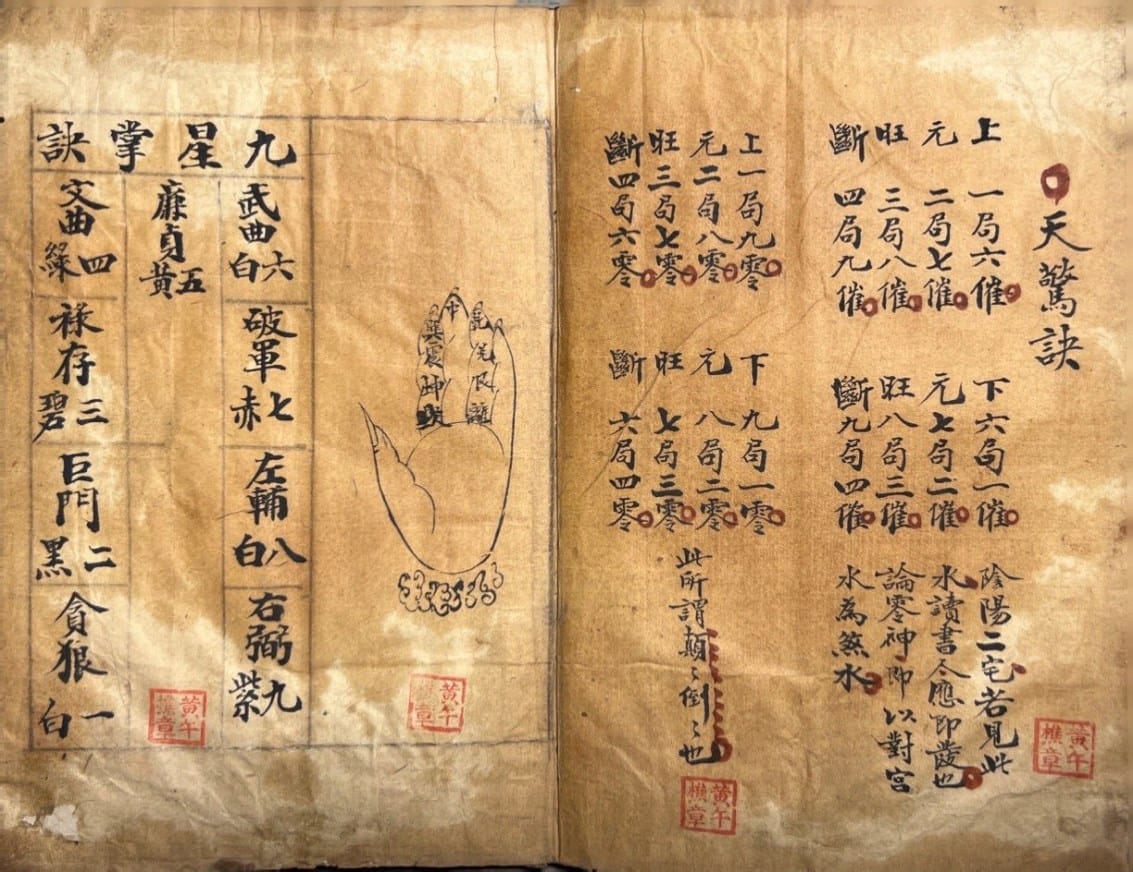 天驚訣
上 一局六催
元 二局七催
旺 三局八催
斷 四局九催
下六局一催
元七局二催
旺八局三催
斷九局四催
陰陽二宅若見此
水讀書今應即發也
論零神即以對宮
水為煞水
黃午
樵章
上一局九零
元二局八零
旺三局七零
斷四局六零
下 九局一零
元 八局二零
旺 七局三零
斷 六局四零
此所謂顛〻倒〻也
黃午
樵章
兌艮離
中
巽震坤
黃午
樵章
九星掌訣
武曲
六白
破軍
七赤
左輔
八白
右弼
九紫
廉貞
五黃
文曲
四綠
祿存
三碧
巨門
二黑
貪狼
一白
黃午
樵章